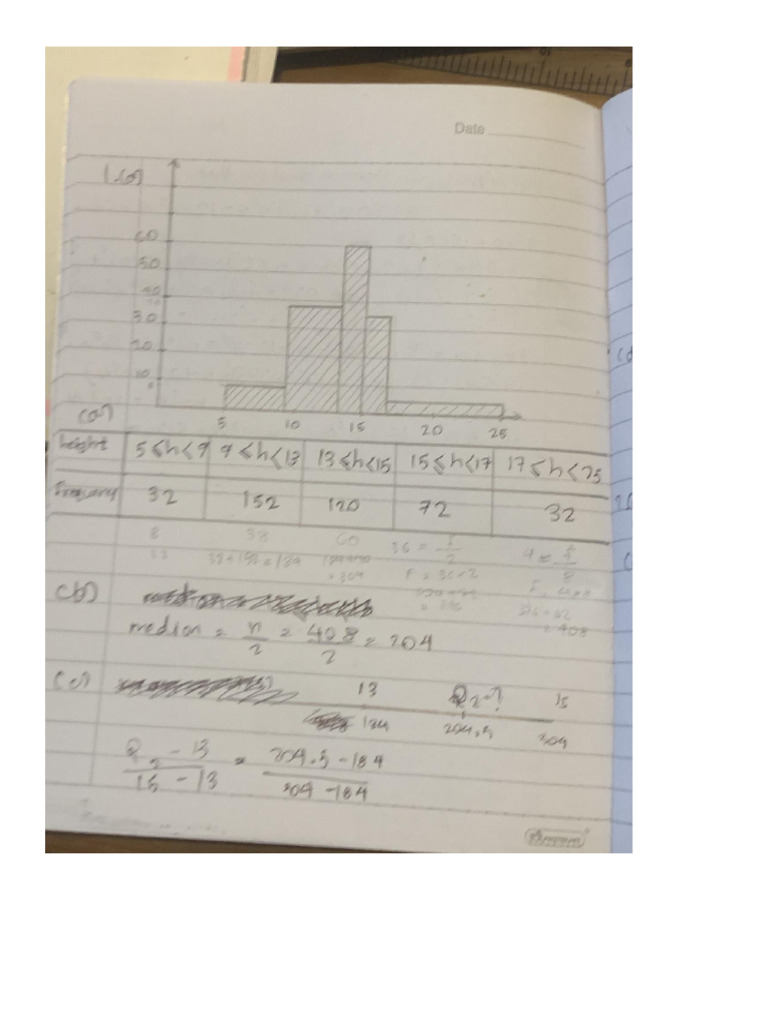 Date
60
50
40
30
20
10
5 10 15 20 25
(a)
height 5≤h<9 9≤h<13 13≤h<15 15≤h<17 17≤h<25
Frequency 32 152 120 72 32
8 38 60 36 = f/2 4 = f/8
32 32+152=184 = 304 F = 36×2
= 408
(b)
median = n/2 = 408/2 = 204
(c) 13 Q₂=? 15
184 204.5 304
Q₂-13/15-13 = 204.5-184/304-184